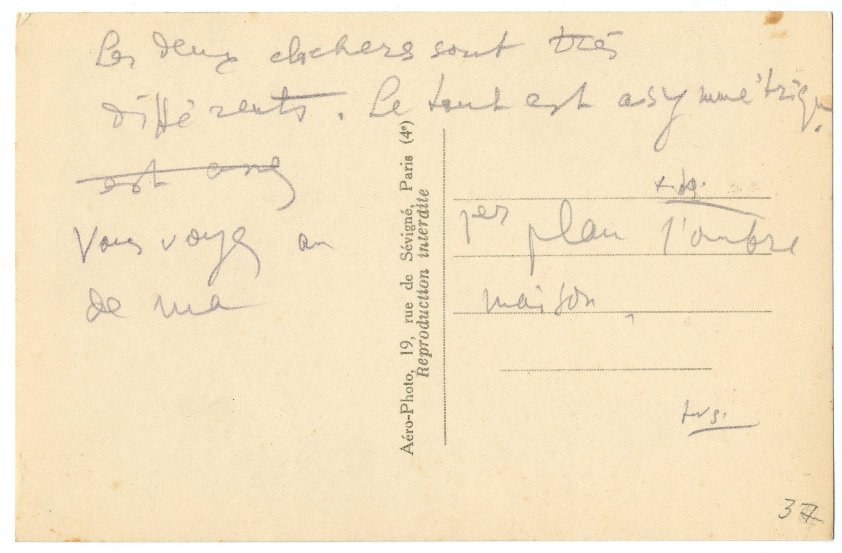 Les deux clochers sont très
différents. Le tout est asymmétrique.
est
Vous voyez au 1er plan l'ombre
de ma maison,
t.s.v.p.
Aéro-Photo, 19, rue de Sévigné, Paris (4e)
Reproduction interdite
37